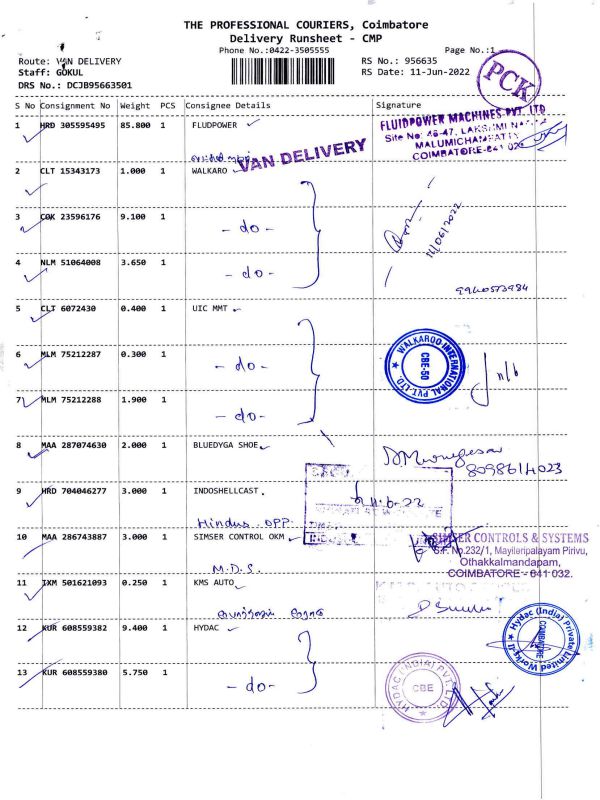 THE PROFESSIONAL COURIERS, Coimbatore
Delivery Runsheet - CMP
Phone No.:0422-3505555
Page No.:1
Route: VAN DELIVERY
RS No.: 956635
Staff: GOKUL
RS Date: 11-Jun-2022
DRS No.: DCJB95663501
PCK
S No Consignment No Weight PCS Consignee Details Signature
1 HRD 305595495 85.800 1 FLUDPOWER
FLUIDPOWER MACHINES PVT. LTD
Site No: 46-47, LAKSHMI
MALUMICHAMPATTY
COIMBATORE-641 02
VAN DELIVERY
2 CLT 15343173 1.000 1 WALKARO
3 COK 23596176 9.100 1 - do -
11/06/2022
4 NLM 51064008 3.650 1 - do -
5 CLT 6072430 0.400 1 UIC MMT
WALKAROO INTERNATIONAL PVT. LTD.
CBE-50
6 MLM 75212287 0.300 1 - do -
7 MLM 75212288 1.900 1 - do -
8 MAA 287074630 2.000 1 BLUEDYGA SHOE
8098614023
9 HRD 704046277 3.000 1 INDOSHELLCAST.
Hindus OPP.
10 MAA 286743887 3.000 1 SIMSER CONTROL OKM
SIMSER CONTROLS & SYSTEMS
S.F. No.232/1, Mayileripalayam Pirivu,
Othakkalmandapam,
COIMBATORE - 641 032.
M.D.S.
11 IXM 501621093 0.250 1 KMS AUTO
12 KUR 608559382 9.400 1 HYDAC
Hydac (India) Private Limited Works-II
COIMBATORE
13 KUR 608559380 5.750 1 - do -
HYDAC (INDIA) PVT. LTD.
CBE